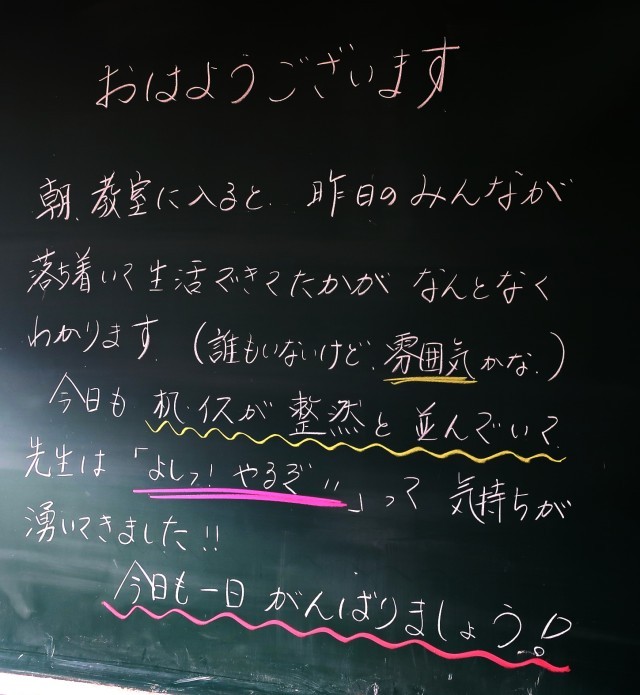 おはようございます
朝、教室に入ると、昨日のみんなが
落ち着いて生活できてたかが なんとなく
わかります。(誰もいないけど、雰囲気かな。)
今日も 机・イスが 整然と 並んでいて
先生は「よしっ! やるぞ!!」って 気持ちが
湧いてきました!!
今日も一日 がんばりましょう!